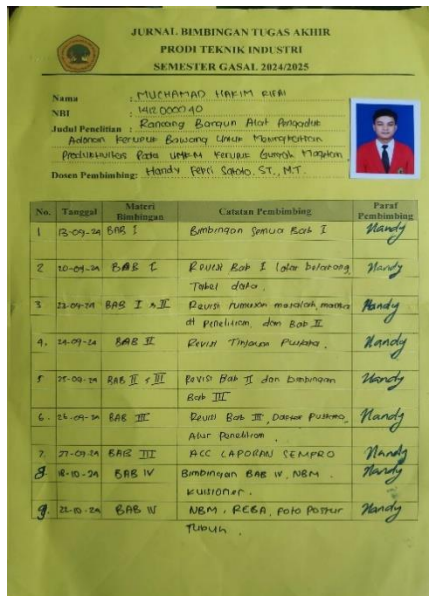 JURNAL BIMBINGAN TUGAS AKHIR
PRODI TEKNIK INDUSTRI
SEMESTER GASAL 2024/2025
Nama : MUCHAMAD HAKIM RIFAI
NBI : 1412000040
Judul Penelitian : Rancang Bangun Alat Pengaduk
Adonan Kerupuk Bawang Untuk Meningkatkan
Produktivitas Pada UMKM Kerupuk Magetan
Dosen Pembimbing: Handy Febri Satoto, ST., M.T.
No. Tanggal Materi Bimbingan Catatan Pembimbing Paraf Pembimbing
1 13-09-24 BAB I Bimbingan Semua Bab I Handy
2 20-09-24 BAB I Revisi Bab I latar belakang Handy
Tabel data.
3 23-09-24 BAB I & II Revisi rumusan masalah, Handy
di Penelitian, dan Bab II
4. 24-09-24 BAB II Revisi Tinjauan Pustaka. Handy
5 25-09-24 BAB II & III Revisi Bab II dan bimbingan Handy
Bab III
6. 26-09-24 BAB III Revisi Bab III, Daftar Pustaka, Handy
Alur Penelitian.
7. 27-09-24 BAB III ACC LAPORAN SEMPRO Handy
8. 18-10-24 BAB IV Bimbingan BAB IV, NBM. Handy
kuisioner.
9. 22-10-24 BAB IV NBM, REBA, Foto Postur Handy
Tubuh.